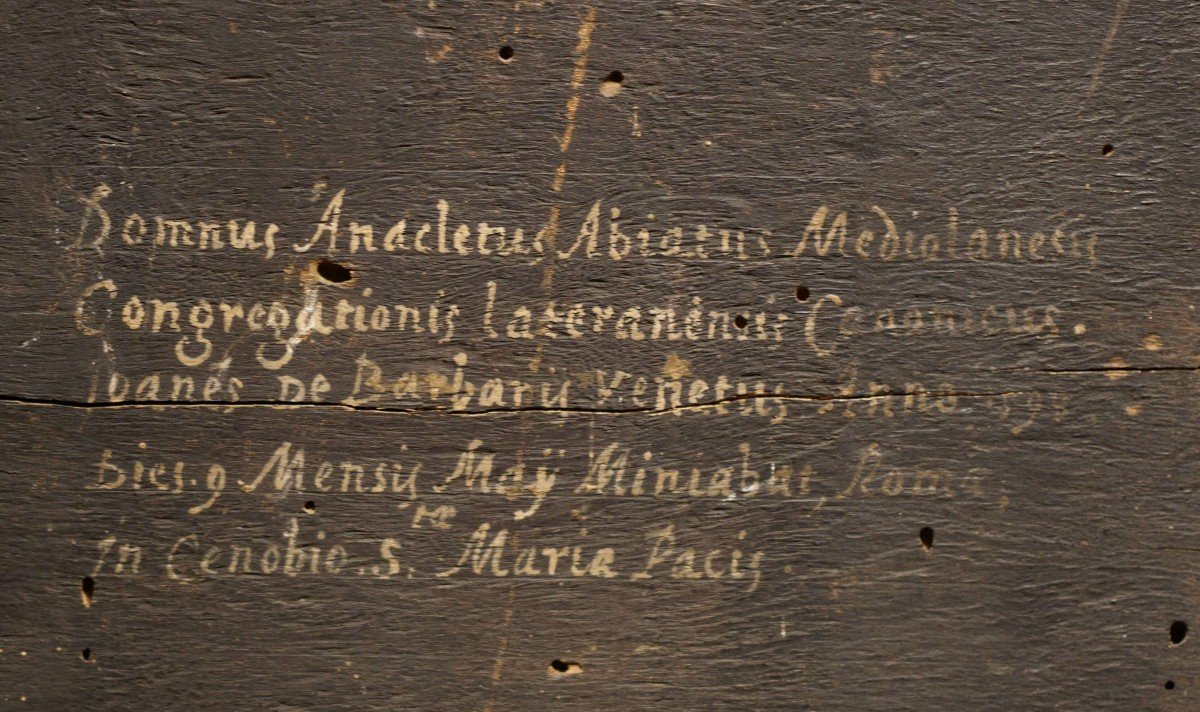 Domnus Anacletus Abiatus Mediolanesis
Congregationis lateranensis Canonicus.
Ioanes De Barbarij Venetus Anno
Dies. 9. Mensis Maij Miniabat Roma
in Cenobio. S.tae Maria Pacis.